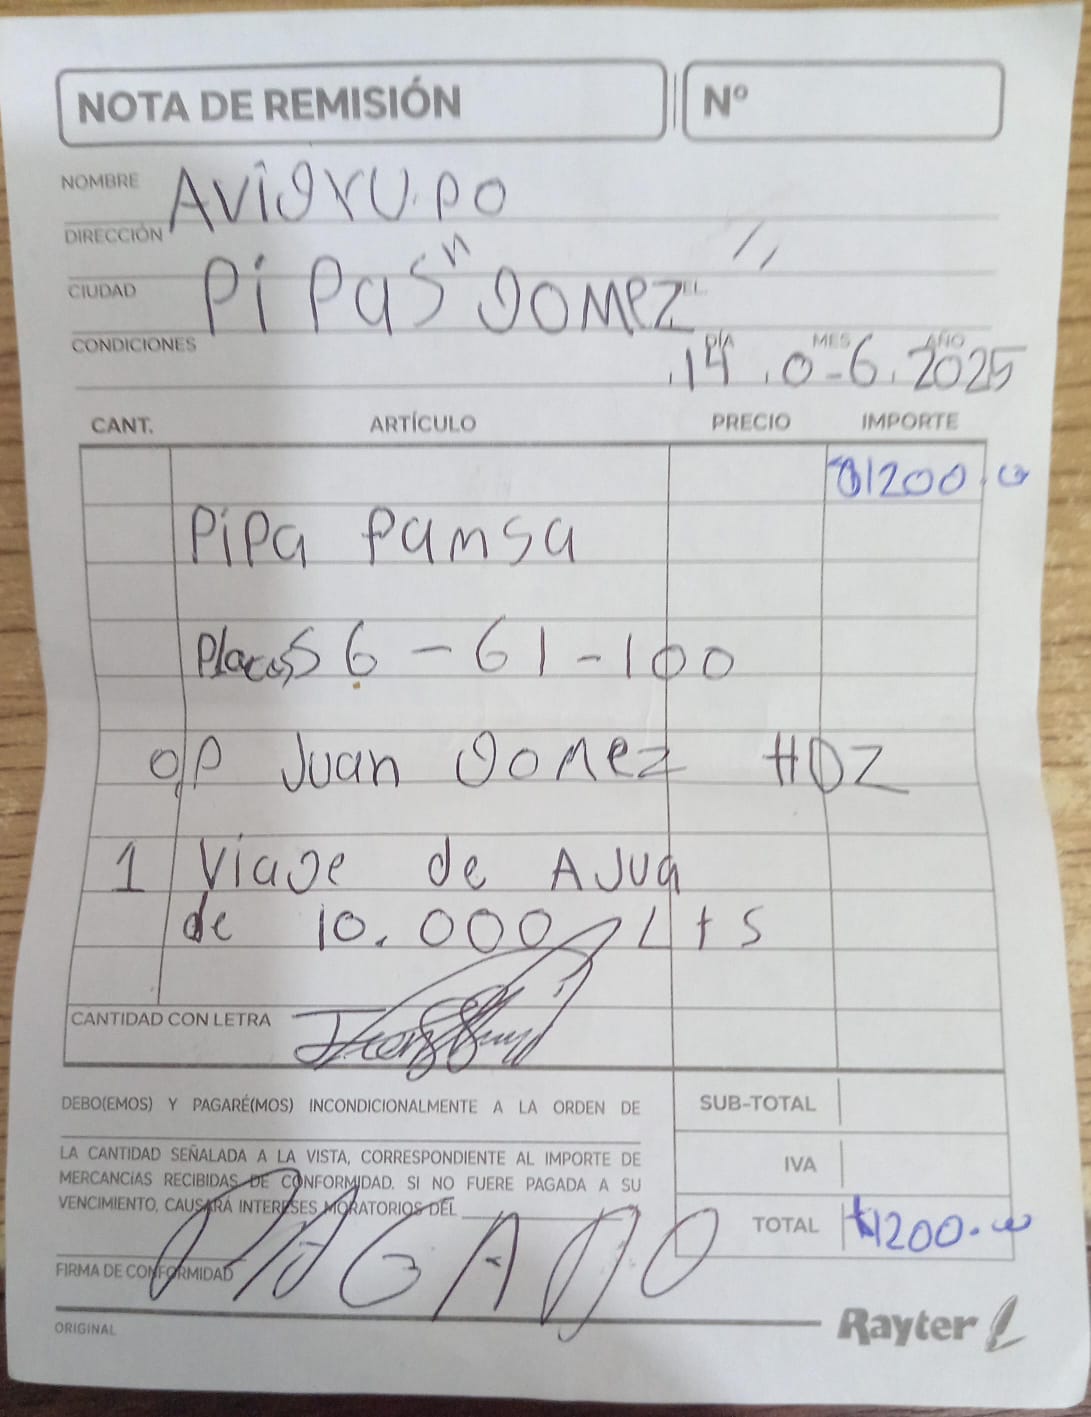 NOTA DE REMISIÓN
Nº
NOMBRE Avigrupo
DIRECCIÓN
CIUDAD PiPas "Gomez"
CONDICIONES
DÍA MES AÑO
14.0-6.2025
CANT. ARTÍCULO PRECIO IMPORTE
$1200.00
PiPa Pamsa
Placas 6-61-100
o/p Juan Gomez HDZ
1 Viaje de AJua
de 10.000 Lts
CANTIDAD CON LETRA
DEBO(EMOS) Y PAGARÉ(MOS) INCONDICIONALMENTE A LA ORDEN DE
LA CANTIDAD SEÑALADA A LA VISTA, CORRESPONDIENTE AL IMPORTE DE
MERCANCÍAS RECIBIDAS DE CONFORMIDAD. SI NO FUERE PAGADA A SU
VENCIMIENTO, CAUSARÁ INTERESES MORATORIOS DEL
SUB-TOTAL
IVA
TOTAL $1200.00
PAGADO
FIRMA DE CONFORMIDAD
ORIGINAL
Rayter